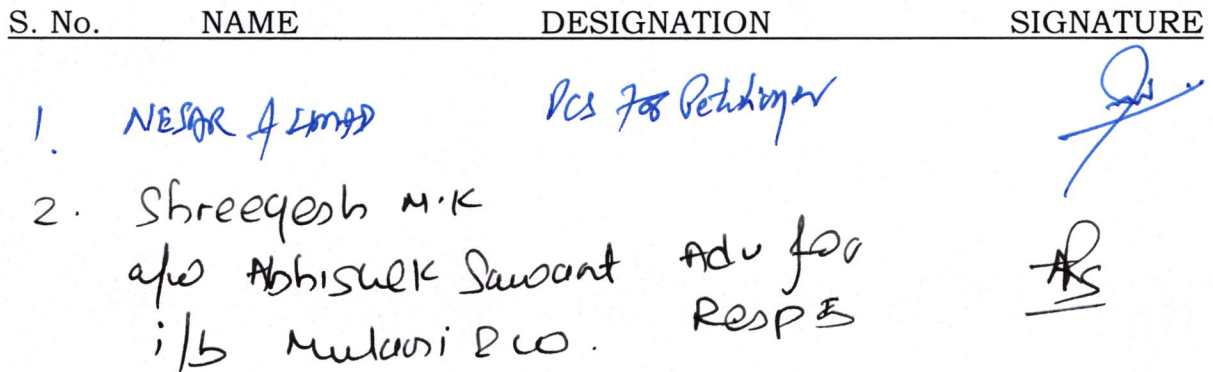 S. No. NAME DESIGNATION SIGNATURE
1. NESAR AHMAD PCS For Petitioner
2. Shreegesh M.K
a/w Abhishek Sawant Adv for
i/b & co. Resp